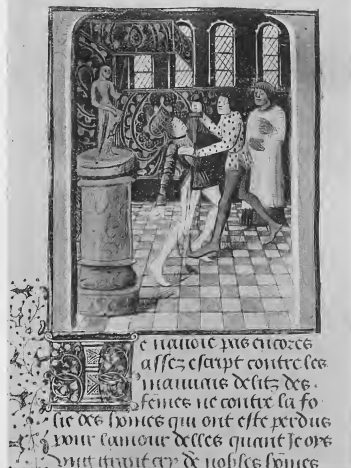 Je nauoie pas encores
assez escript contre les
mauuais delitz des
fēmes ne contre la fo
lie des hōmes qui ont este perdus
pour lamour delles quant Je oys
vng grant cry de nobles hōmes